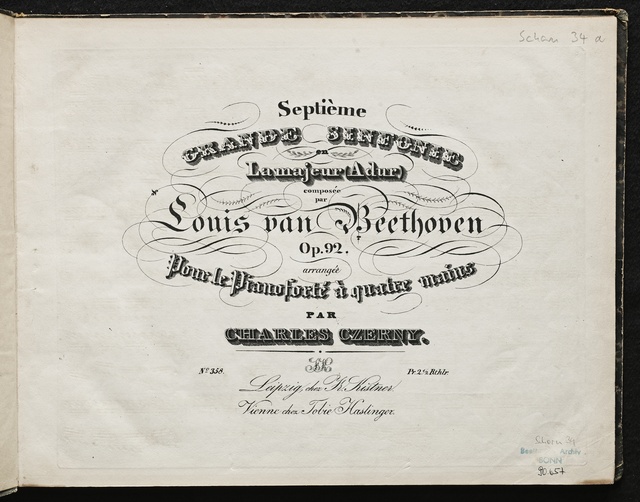 Scham 34 a
Septième
GRANDE SINFONIE
en
La majeur (A dur)
composée
par
Louis van Beethoven
Op. 92.
arrangée
Pour le Pianoforté à quatre mains
PAR
CHARLES CZERNY.
Nº 358.
Pr. 2⅓ Rthlr.
Leipzig, chez Fr. Kistner
Vienne chez Tobie Haslinger.
Archiv
BONN
90.657